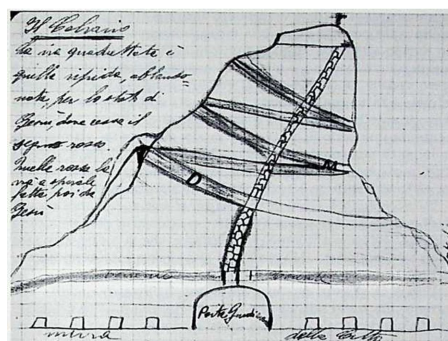 Il Calvario
la via quadrettata è
quella ripida, abbando-
nata, per lo stato di
Gesù, dove cessa il
segno rosso.
Quella rossa la
via a spirale
fatta poi da
Gesù
M
D
Porta Giudiziaria
mura
della Città